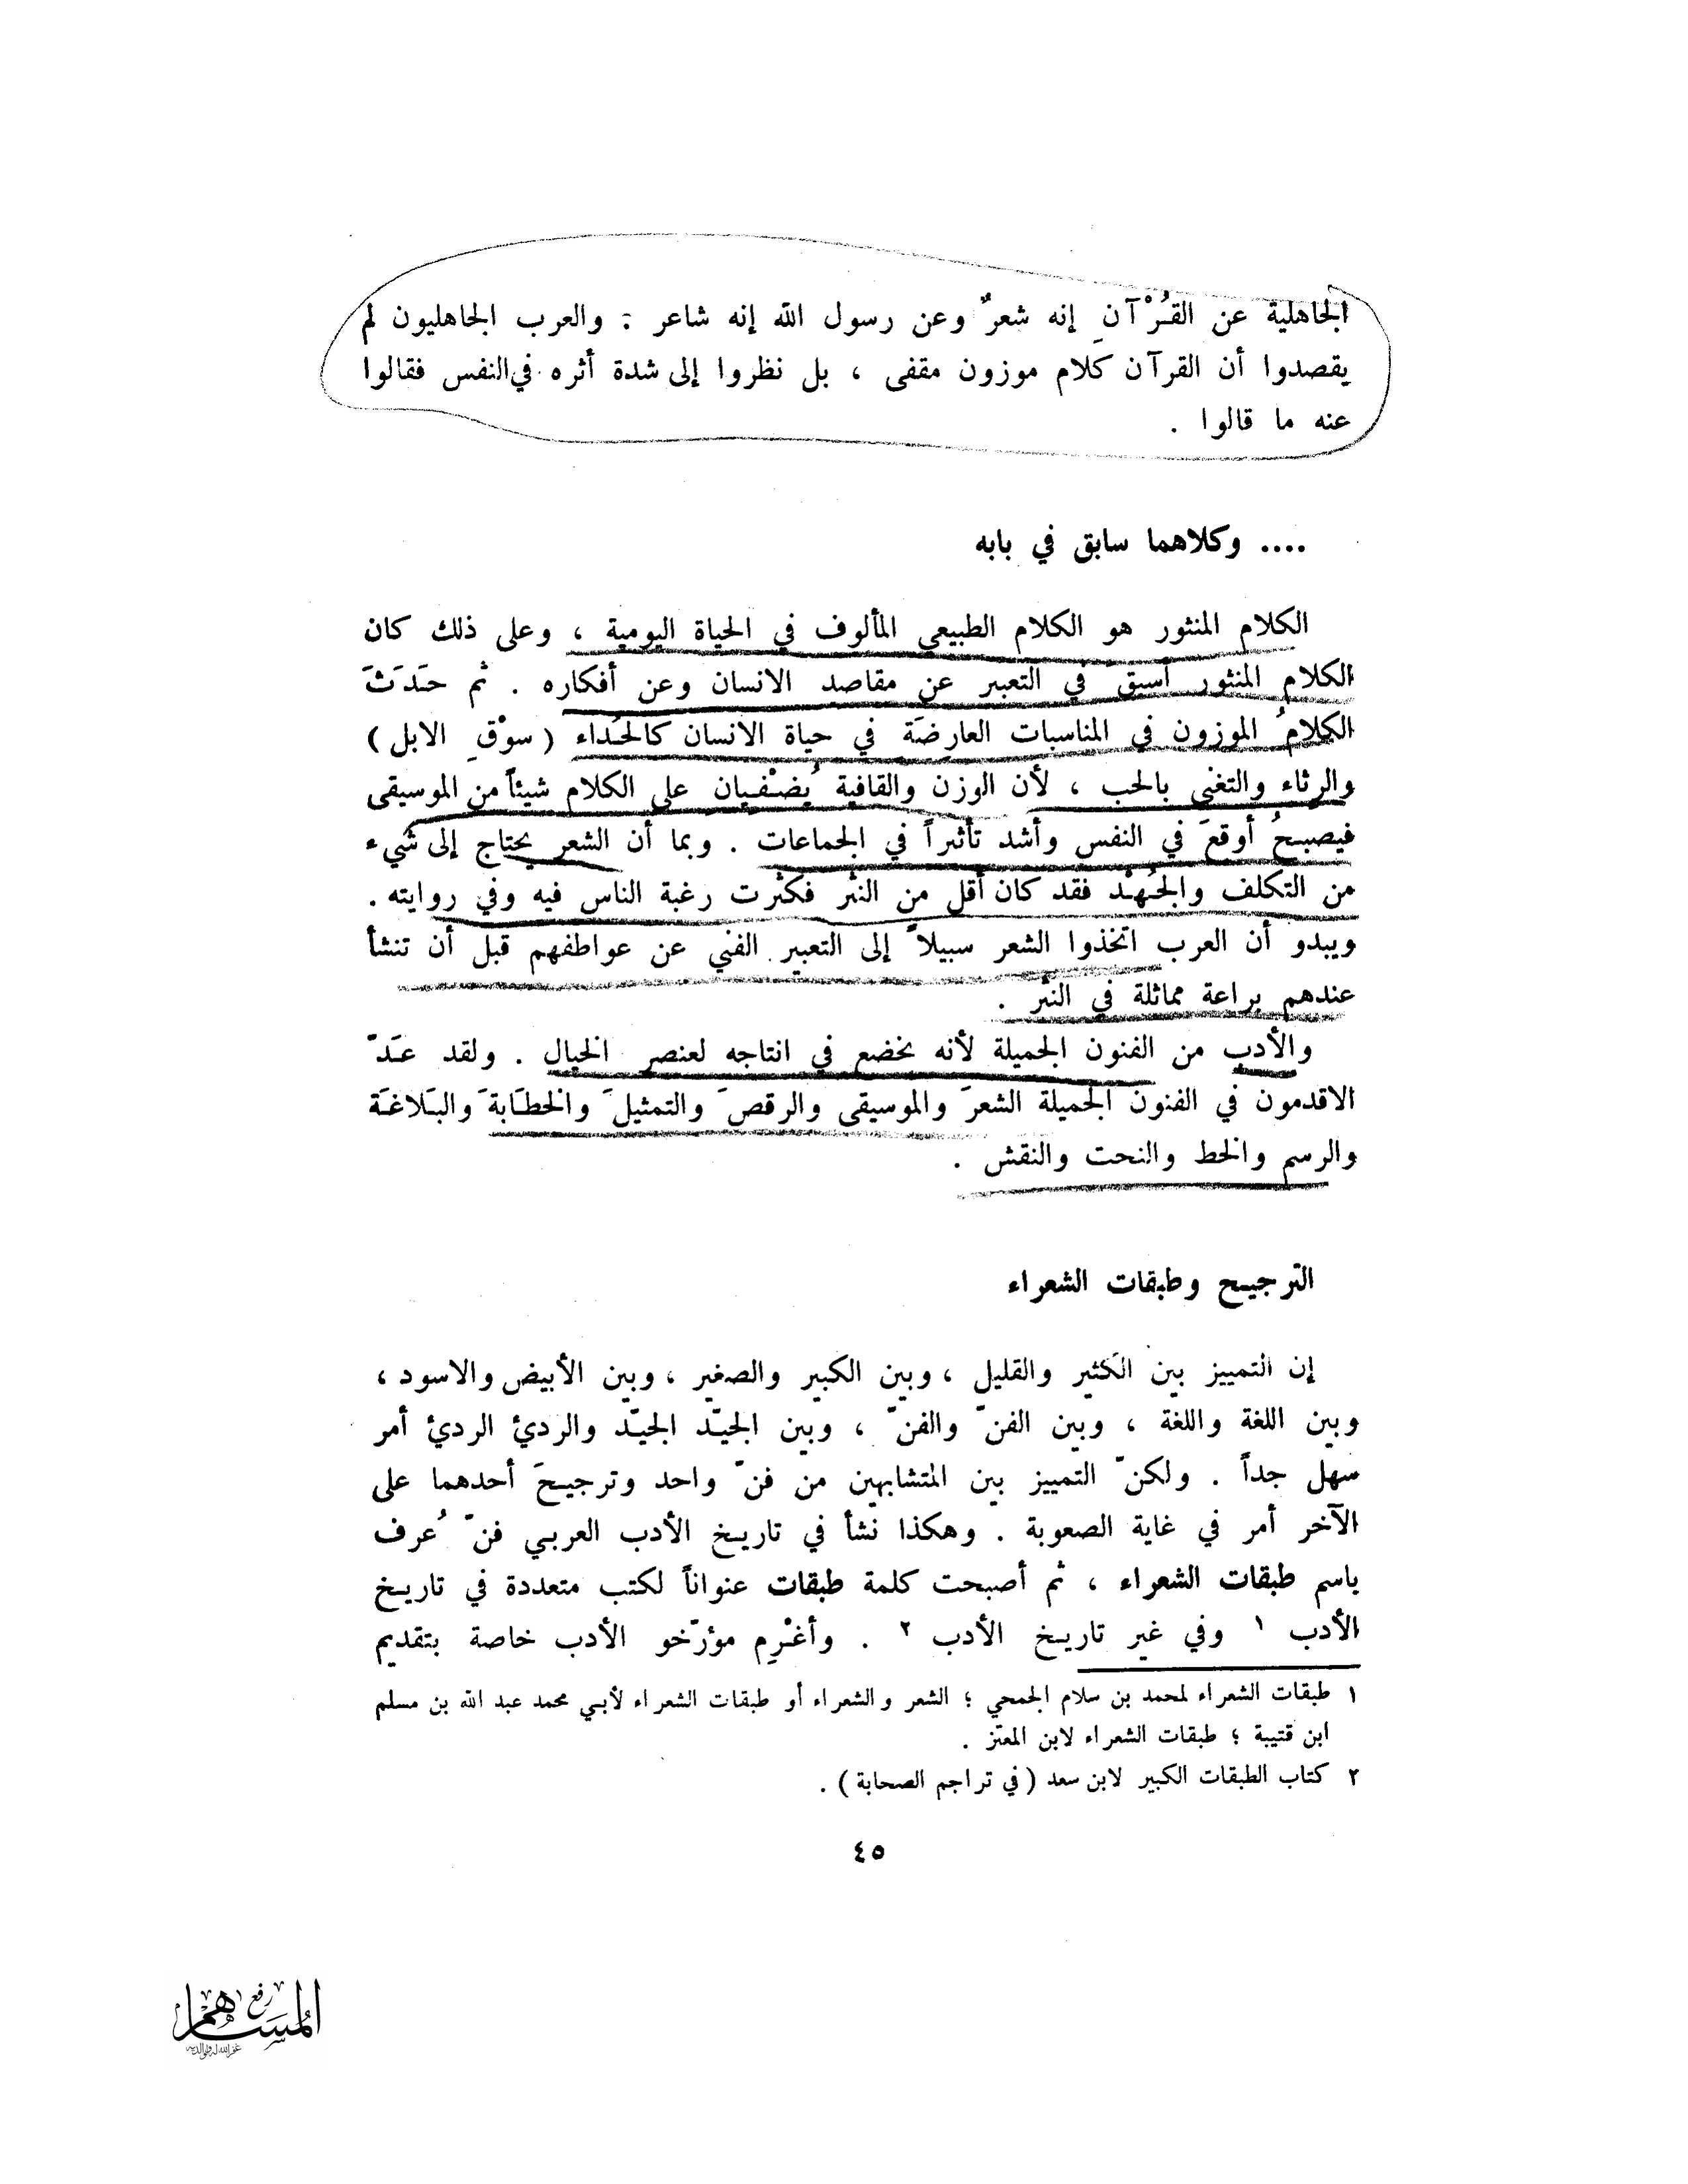 الجاهلية عن القُرْآنِ إنه شعرٌ وعن رسول الله إنه شاعر : والعرب الجاهليون لم
يقصدوا أن القرآن كلام موزون مقفى ، بل نظروا إلى شدة أثره في النفس فقالوا
عنه ما قالوا .
.... وكلاهما سابق في بابه
الكلام المنثور هو الكلام الطبيعي المألوف في الحياة اليومية ، وعلى ذلك كان
الكلام المنثور أسبق في التعبير عن مقاصد الانسان وعن أفكاره . ثم حَدَثَ
الكلامُ الموزون في المناسبات العارِضَة في حياة الانسان كالحُداء ( سوْقِ الابل )
والرثاء والتغني بالحب ، لأن الوزن والقافية يُضْفيان على الكلام شيئاً من الموسيقى
فيصبحُ أوقعَ في النفس وأشد تأثيراً في الجماعات . وبما أن الشعر يحتاج إلى شيء
من التكلف والجُهْد فقد كان أقل من النثر فكثرت رغبة الناس فيه وفي روايته .
ويبدو أن العرب اتخذوا الشعر سبيلاً إلى التعبير الفني عن عواطفهم قبل أن تنشأ
عندهم براعة مماثلة في النثر .
والأدب من الفنون الجميلة لأنه يخضع في انتاجه لعنصر الخيال . ولقد عَدّ
الاقدمون في الفنون الجميلة الشعرَ والموسيقى والرقصَ والتمثيلَ والخطَابةَ والبَلاغَة
والرسم والخط والنحت والنقش .
الترجيح وطبقات الشعراء
إن التمييز بين الكثير والقليل ، وبين الكبير والصغير ، وبين الأبيض والاسود ،
وبين اللغة واللغة ، وبين الفنّ والفنّ ، وبين الجيّد الجيّد والرديُ الرديُ أمر
سهل جداً . ولكنّ التمييز بين المتشابهين من فنّ واحد وترجيحَ أحدهما على
الآخر أمر في غاية الصعوبة . وهكذا نشأ في تاريخ الأدب العربي فنّ عُرف
باسم طبقات الشعراء ، ثم أصبحت كلمة طبقات عنواناً لكتب متعددة في تاريخ
الأدب ١ وفي غير تاريخ الأدب ٢ . وأغْرِم مؤرّخو الأدب خاصة بتقديم
١ طبقات الشعراء لمحمد بن سلام الجمحي ؛ الشعر والشعراء أو طبقات الشعراء لأبي محمد عبد الله بن مسلم
ابن قتيبة ؛ طبقات الشعراء لابن المعتز .
٢ كتاب الطبقات الكبير لابن سعد ( في تراجم الصحابة ) .
٤٥
رفع
المساهم
غفر الله له ولوالديه